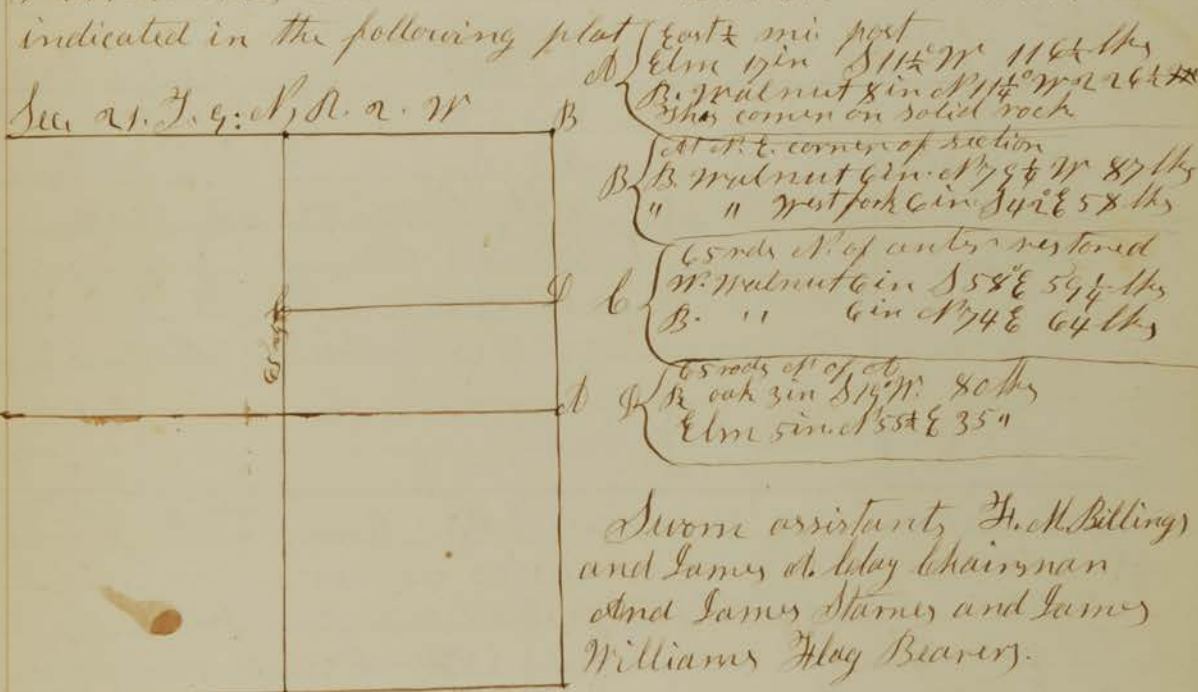 indicated in the following plat
Sec. 21. T. 9. N, R. 2. W
B
C
D
65 rds
A
A East ½ mi post
Elm 17 in S 11½° W 116½ lks
B. Walnut 8 in N 11¼° W 226½ lks
This corner on solid rock
B At N. E. corner of section
B. Walnut 6 in. N 79¼ W 87 lks
" " West fork 6 in S 42° E 58 lks
C 65 rds N. of center restored
W. Walnut 6 in S 58° E 59¼ lks
B. " 6 in N 74 E 64 lks
D 65 rods N of A
B oak 3 in S 19° W. 80 lks
Elm 5 in. N 55½ E 35 "
Sworn assistants F. M. Billings
and James A. Clay Chainman
And James Starnes and James
Williams Flag Bearers.